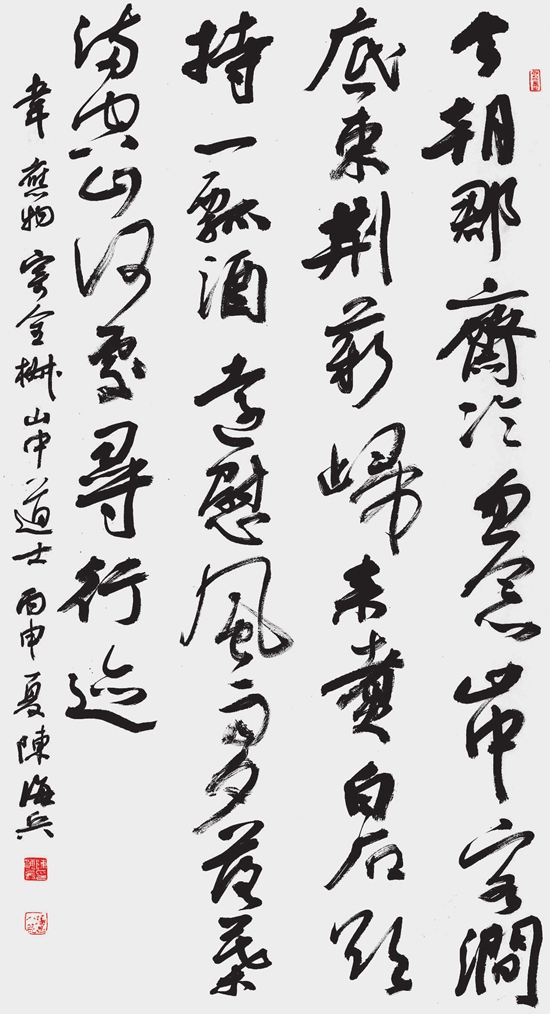 今朝郡齋冷忽念山中客澗
底束荆薪歸来煮白石欲
持一瓢酒遠慰風雨夕落葉
滿空山何處尋行迹
韋應物寄全椒山中道士丙申夏陳海兵